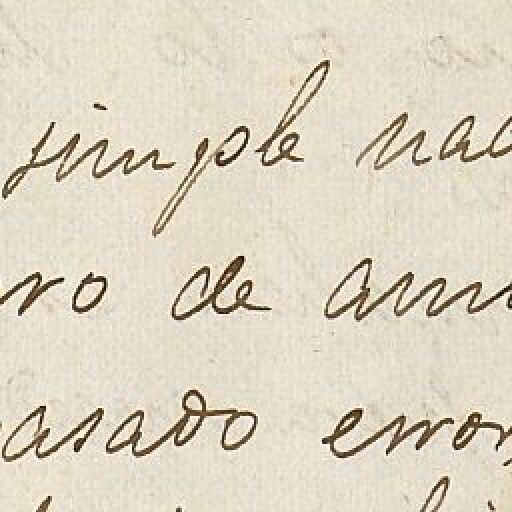 simple nac
ro de amn
asado erron